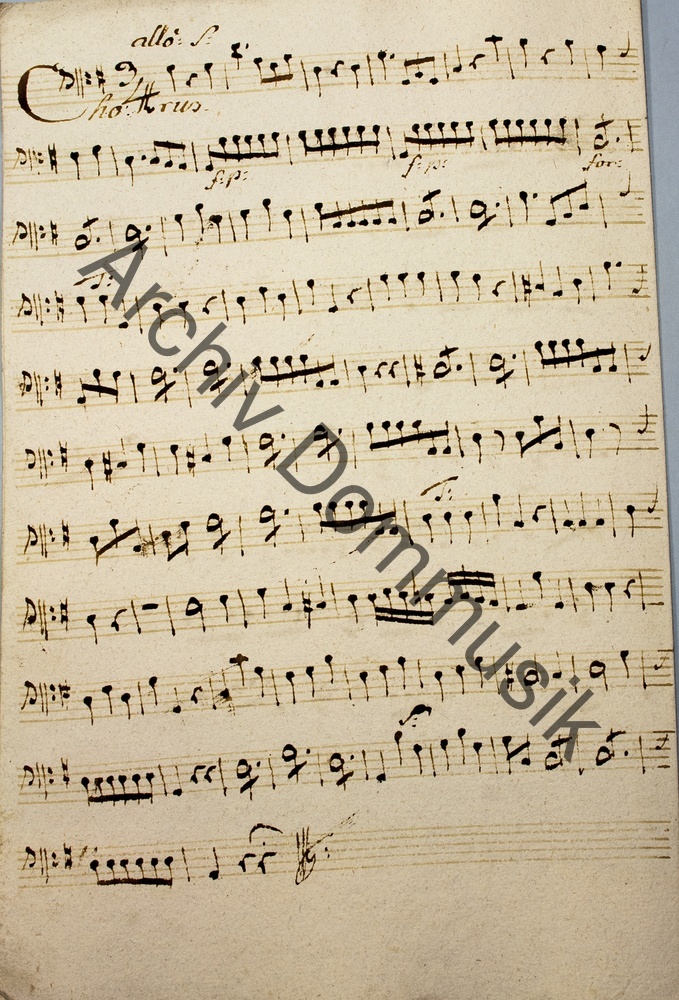 allo: f:
3/4
Chorus
f:p: f:p: for:
f:
f:
f:
Archiv Dommusik